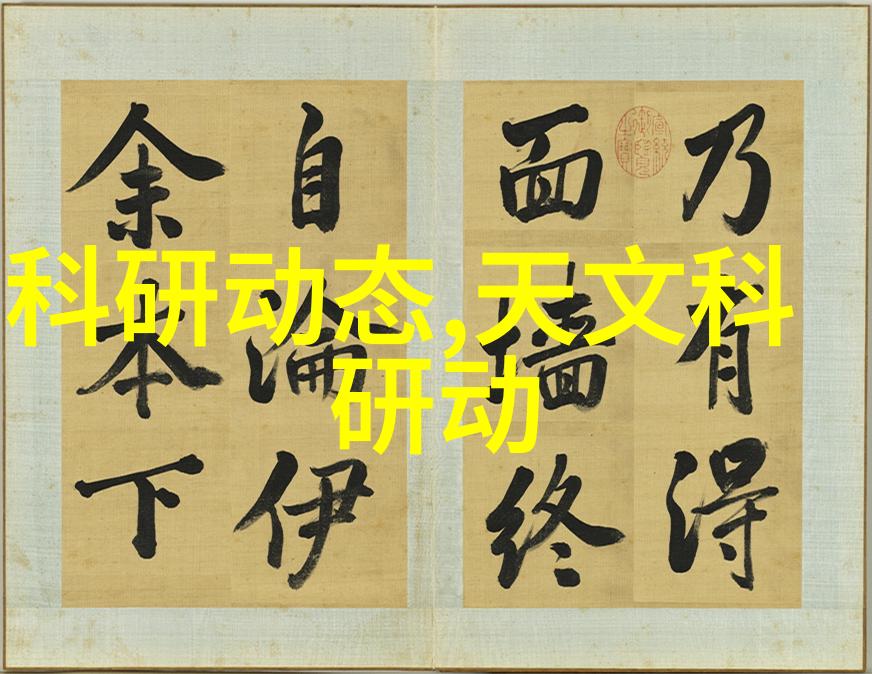 科研动态,天文科
研动
乃有得
面墻終
自淪伊
余本下